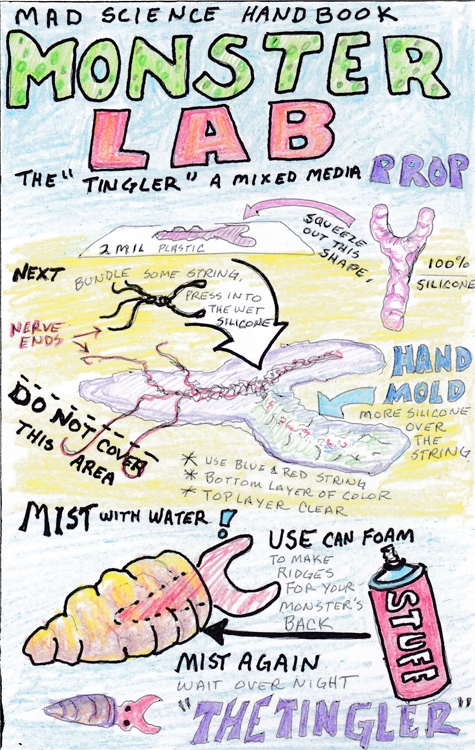 MAD SCIENCE HANDBOOK
MONSTER
LAB
THE "TINGLER" A MIXED MEDIA PROP
SQUEEZE
OUT THIS
SHAPE,
2 MIL PLASTIC
100%
SILICONE
NEXT
BUNDLE SOME STRING,
PRESS INTO
THE WET
SILICONE
NERVE
ENDS
HAND
MOLD
MORE SILICONE
OVER
THE
STRING
DO NOT COVER
THIS AREA
* USE BLUE & RED STRING
* BOTTOM LAYER OF COLOR
* TOP LAYER CLEAR
MIST WITH WATER!
USE CAN FOAM
TO MAKE
RIDGES
FOR YOUR
MONSTER'S
BACK
STUFF
MIST AGAIN
WAIT OVER NIGHT
"THE TINGLER"